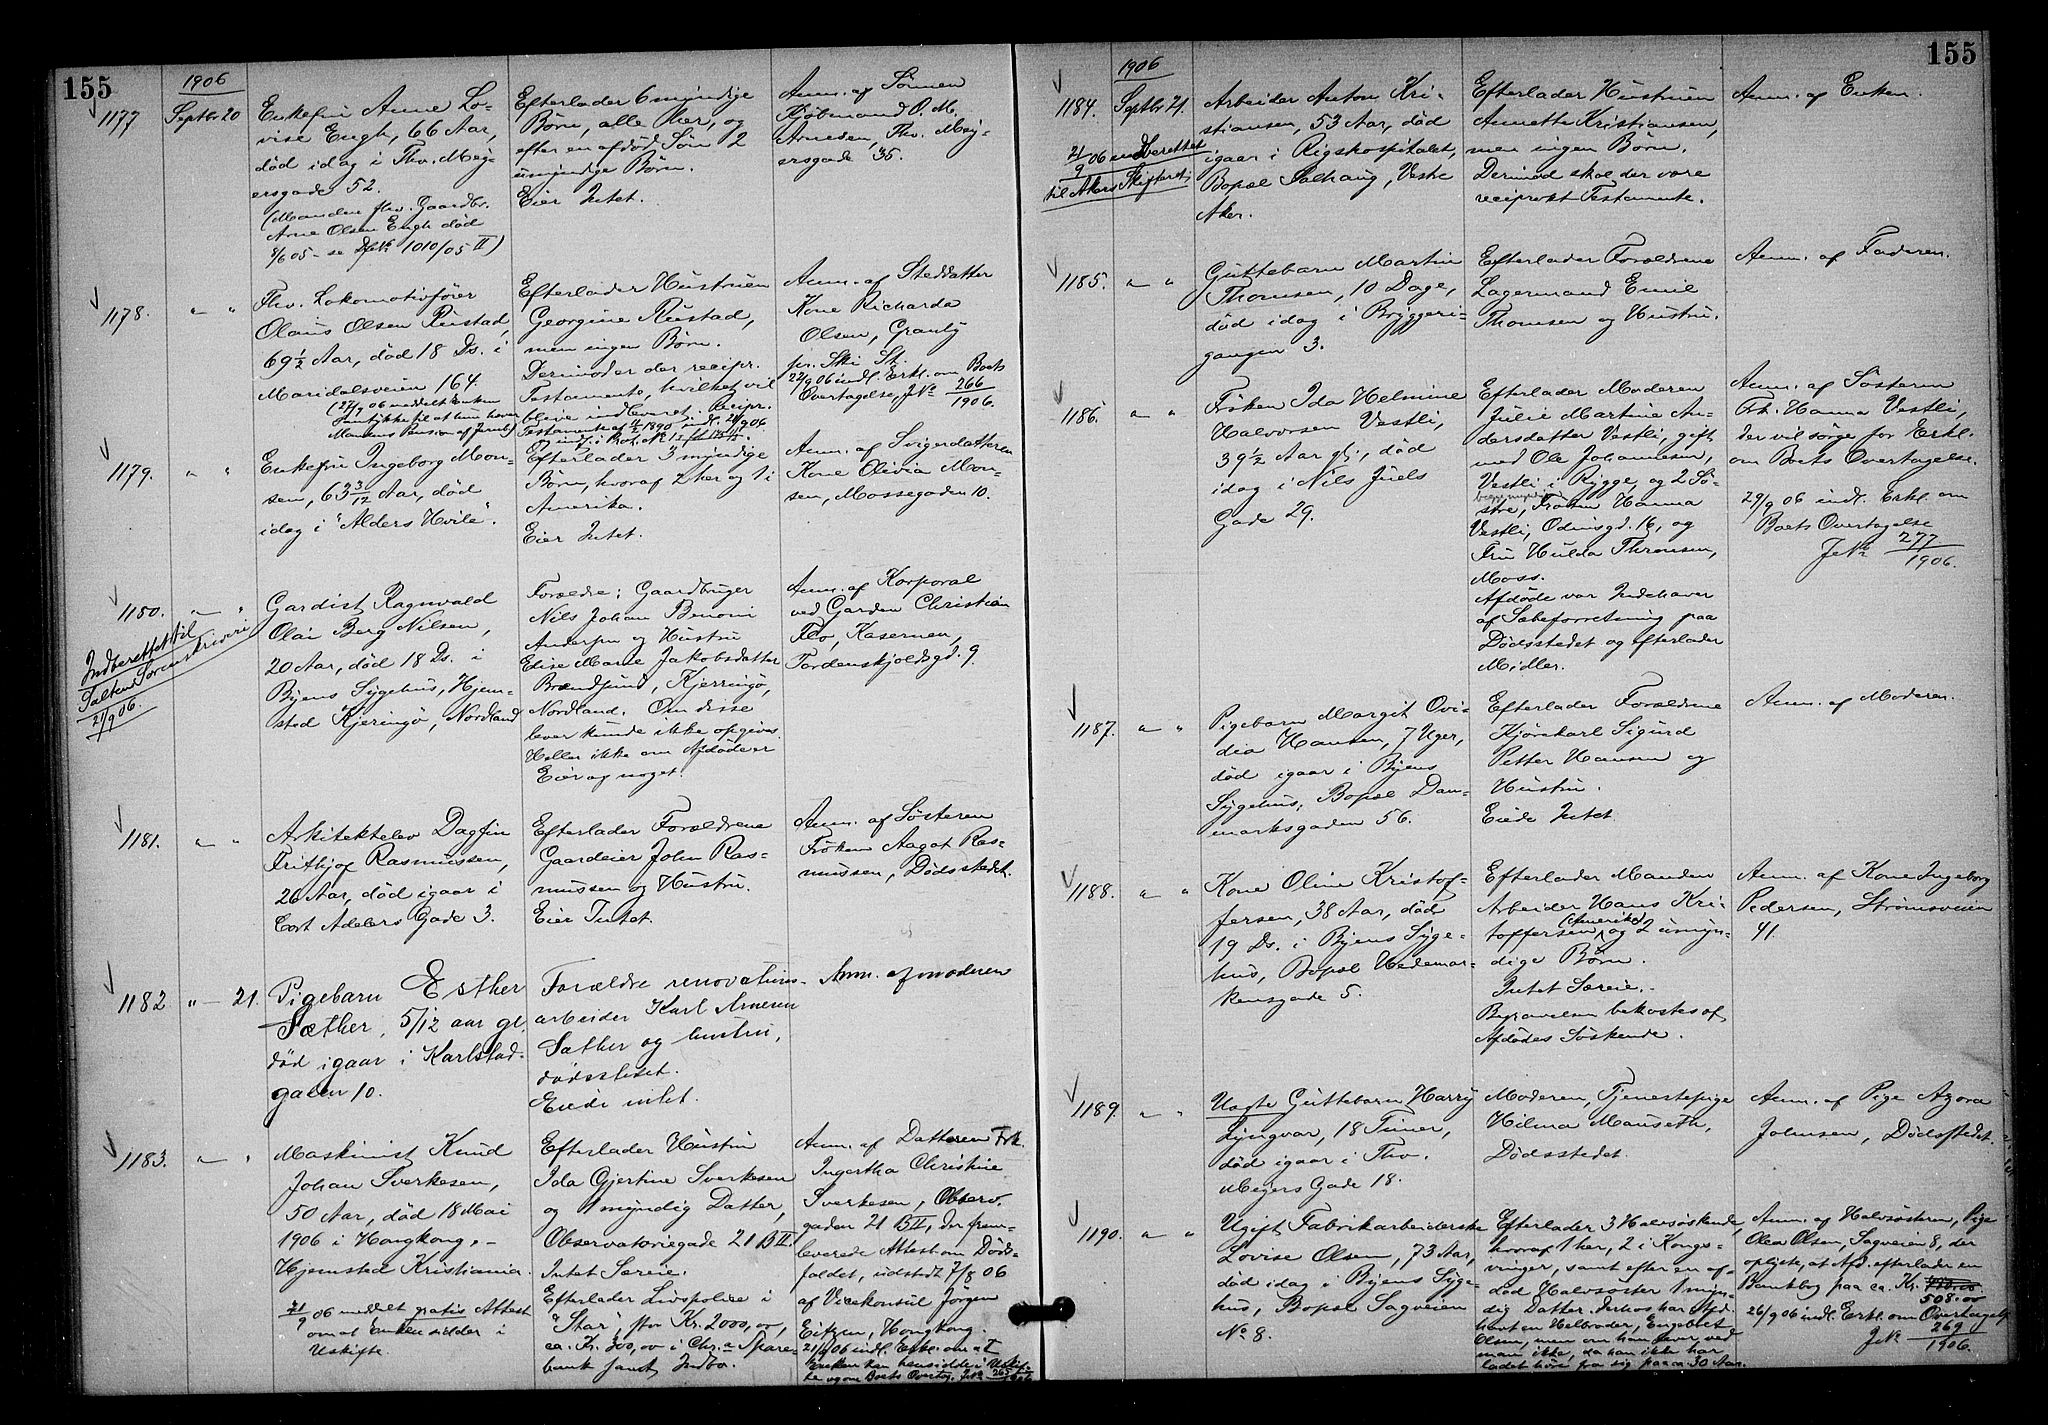 155
1906
1177
Septbr 20
Enkefru Anne Lo-
vise Engh, 66 Aar,
død idag i Thv. Mey-
ersgade 52.
(Manden fhv. Gaardbr.
Arne Olsen Engh død
8/6 05 - se Dfs№ 1010/05 II)
Efterlader 6 myndige
Børn, alle her, og
efter en afdød Søn 2
umyndige Børn.
Eier Intet.
Anm. af Sønnen
Kjøbmand O. M.
Arnesen, Thv. Mey-
ersgade 35.
1178.
" "
Fhv. Lokomotivfører
Olaus Olsen Rustad,
69 1/2 Aar, død 18 Ds. i
Maridalsveien 164.
(27/9 06 meddelt Enken
Samtykke til at hun hever
Mandens Pension af Jernb.)
Efterlader Hustruen
Georgine Rustad,
men ingen Børn.
Derimod er der recipr.
Testamente, hvilket vil
blive indleveret. Recipr.
Anm. af Steddatter
Kone Richarda
Olsen, Granly
pr. Ski St.
22/9 06 indl. Erkl. om Boets
Overtagelse, J№ 266/1906.
1179.
" "
Enkefru Ingeborg Mon-
sen, 63 3/12 Aar, død
idag i "Alders Hvile".
Efterlader 3 myndige
Børn, hvoraf 2 her og 1 i
Amerika.
Eier Intet.
Anm. af Svigerdatteren
Kone Olivia Mon-
sen, Mossegaden 10.
1180.
" "
Indberettet til
Salten Sorenskriveri
21/9 06.
Gardist Ragnvald
Olai Berg Nilsen,
20 Aar, død 18 Ds. i
Byens Sygehus, Hjem-
sted Kjeringø, Nordland
Forældre: Gaardbruger
Nils Johan Benoni
Andersen og Hustru
Elise Marie Jakobsdatter
Brændsund, Kjerringø,
Nordland. Om disse
lever kunde ikke opgives.
Heller ikke om Afdøde er
Eier og noget.
Anm. af Korporal
ved Garden Christian
Flo, Kasernen,
Tordenskjoldsgd. 9.
1181.
" "
Arkitektelev Dagfin
Frithjof Rasmussen,
20 Aar, død igaar i
Cort Adelers Gade 3.
Efterlader Forældrene
Gaardeier John Ras-
mussen og Hustru.
Eier Intet.
Anm. af Søsteren
Frøken Aagot Ras-
mussen, Dødsstedet.
1182
" - 21.
Pigebarn Esther
Sæther, 5/12 aar gl.
død igaar i Karlstad-
gaten 10.
Forældre renovations-
arbeider Karl Arnesen
Sæther og hustru,
dødsstedet.
Eiede intet.
Anm. af moderen
1183.
" "
Maskinist Knud
Johan Sverkesen,
50 Aar, død 18 Mai
1906 i Hongkong, -
Hjemsted Kristiania.
21/9 06 meddelt gratis Attest
om at Enken sidder i
Uskifte
Efterlader Hustru
Ida Gjertine Sverkesen
og 1 myndig Datter,
Observatoriegade 21 B II.
Intet Særeie.
Efterlader Livspolice i
"Star" stor Kr. 2000,00,
ca. Kr. 300,00 i Chr.a Spare-
bank samt Indbo.
Anm. af Datteren Frk.
Ingertha Christine
Sverkesen, Observ.
gaden 21 B II, der frem-
leverede Attest om Døds-
faldet, udstedt 7/8 06
af Vicekonsul Jørgen
Eitzen, Hongkong.
21/9 06 indl. Erkl. om at
Enken kan hensidde i Uskif-
te og om Boets Overtag. J№ 265/1906
155
1906
1184.
Septbr 21.
21/9 06 indberettet
til Akers Skifteret
Arbeider Anton Kri-
stiansen, 53 Aar, død
igaar i Rigshospitalet,
Bopæl Solhaug, Vestre
Aker.
Efterlader Hustruen
Annette Kristiansen,
men ingen Børn.
Derimod skal der være
reciprokt Testamente.
Anm. af Enken.
1185.
" "
Guttebarn Martin
Thomsen, 10 Dage,
død idag i Bryggeri-
gangen 3.
Efterlader Forældrene
Lagermand Emil
Thomsen og Hustru.
Anm. af Faderen.
1186.
" "
Frøken Ida Helmine
Halvorsen Vestli,
39 1/2 Aar gl., død
idag i Nils Juels
Gade 29.
Efterlader Moderen
Julie Martine An-
dersdatter Vestli, gift
med Ole Johannesen,
Vestli i Rygge, og 2 Sø-
stre, Frøken Hanna
Vestli, Odinsgd. 16, og
Fru Hulda Thronsen,
Moss.
Afdøde var Indehaver
af Sæbeforretning paa
Dødsstedet og efterlader
Midler.
Anm. af Søsteren
Frk. Hanna Vestli,
der vil sørge for Erkl.
om Boets Overtagelse.
29/9 06 indl. Erkl. om
Boets Overtagelse
J№ 277/1906.
1187.
" "
Pigebarn Margit Ovi-
dia Hansen, 7 Uger,
død igaar i Byens
Sygehus, Bopæl Dan-
marksgaden 56.
Efterlader Forældrene
Kjørekarl Sigurd
Petter Hansen og
Hustru.
Eiede Intet
Anm. af Moderen.
1188.
" "
Kone Oline Kristof-
fersen, 38 Aar, død
19 Ds. i Byens Syge-
hus, Bopæl Hedemar-
kensgade 5.
Efterlader Manden
Arbeider Hans Kri-
stoffersen (Amerika) og 2 umyn-
dige Børn.
Intet Særeie.-
Begravelsen bekostes af
Afdødes Søskende.
Anm. af Kone Ingeborg
Pedersen, Strømsveien
41.
1189.
" "
Uægte Guttebarn Harry
Lyngvar, 18 Timer,
død igaar i Thv.
Meyers Gade 18.
Moderen, Tjenestepige
Hilma Mauseth,
Dødsstedet.
Anm. af Pige Agora
Johnsen, Dødsstedet.
1190.
" "
Ugift Fabrikarbeiderske
Lovise Olsen, 73 Aar,
død idag i Byens Syge-
hus, Bopæl Sagveien
№ 8.
Efterlader 3 Halvsøskende,
hvoraf 1 her, 2 i Kongs-
vinger, samt efter en af-
død Halvsøster 1 myn-
dig Datter. Derhos har Afd.
havt en Halvbror, Engebret
Olsen, men om han lever ved
man ikke, da han ikke har
ladet høre fra sig paa ca 30 Aar.
Anm. af Halvsøsteren, Pige
Olea Olsen, Sagveien 8, der
oplyste, at Afd. efterlader en
Bankbog paa ca. Kr.
508.00
26/9 06 indl. Erkl. om Overtagelse
J№ 269/1906.